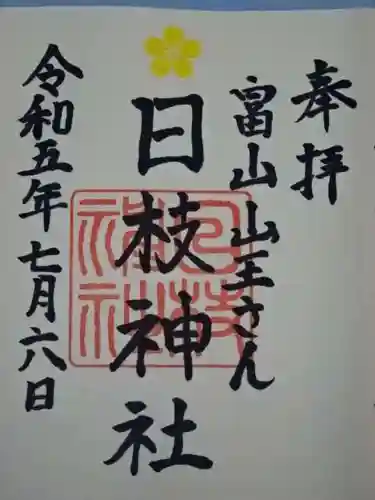 奉拝
富山山王さん
日枝神社
令和五年七月六日
日枝神社